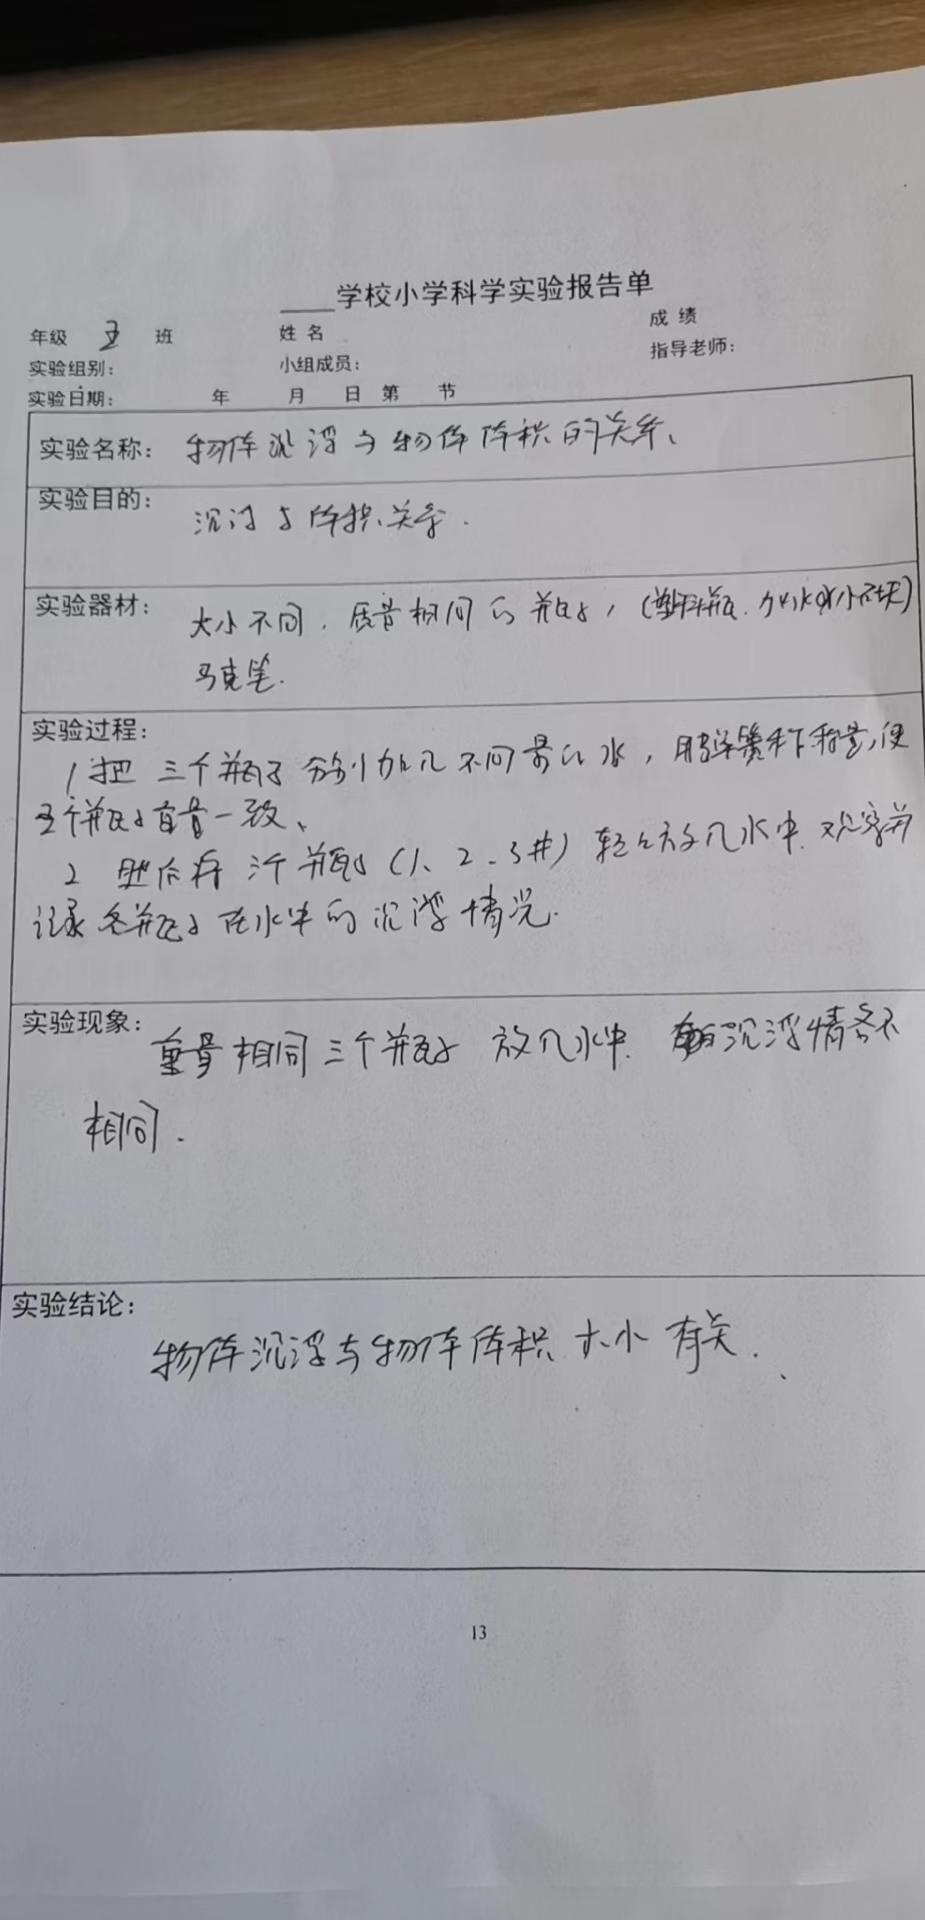 ____学校小学科学实验报告单
年级 五 班 姓名 成绩
实验组别： 小组成员： 指导老师：
实验日期： 年 月 日 第 节
实验名称： 物体沉浮与物体体积的关系、
实验目的：
沉浮与体积关系．
实验器材：
大小不同．质量相同的瓶子，(塑料瓶．加水或小石块)
马克笔．
实验过程：
1 把三个瓶子分别加入不同量的水，用弹簧秤下称量，使
三个瓶子重量一致、
2 然后将三个瓶子(1、2、3#)轻轻放入水中．观察并
记录各瓶子在水中的沉浮情况．
实验现象：
重量相同三个瓶子 放入水中． 沉浮情各不
相同．
实验结论：
物体沉浮与物体体积大小有关．
13